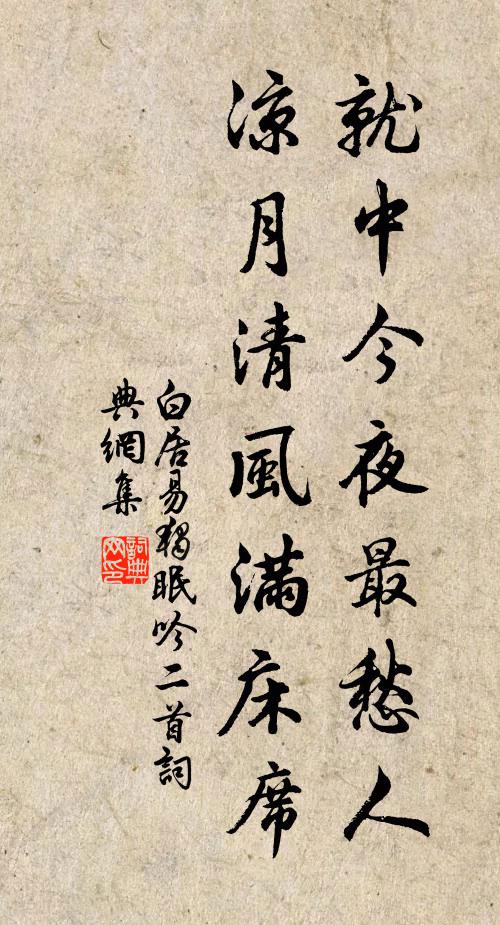 就中今夜最愁人
凉月清風满床席
白居易独眠吟二首詞
典網集
詞典
网印